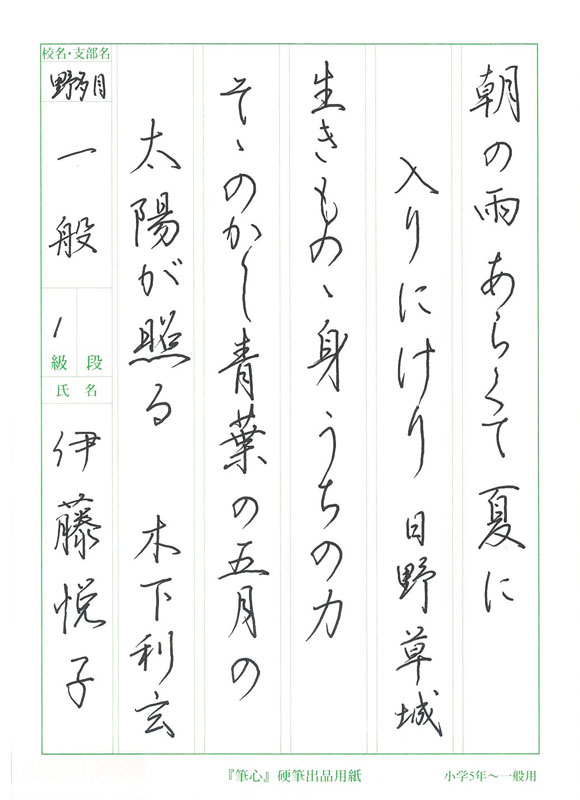 朝の雨あらくて夏に
入りにけり 日野草城
生きものゝ身うちの力
そゝのかし青葉の五月の
太陽が照る 木下利玄
校名・支部名
野多目
一般
1
級 段
氏名
伊藤悦子
『筆心』硬筆出品用紙
小学5年〜一般用